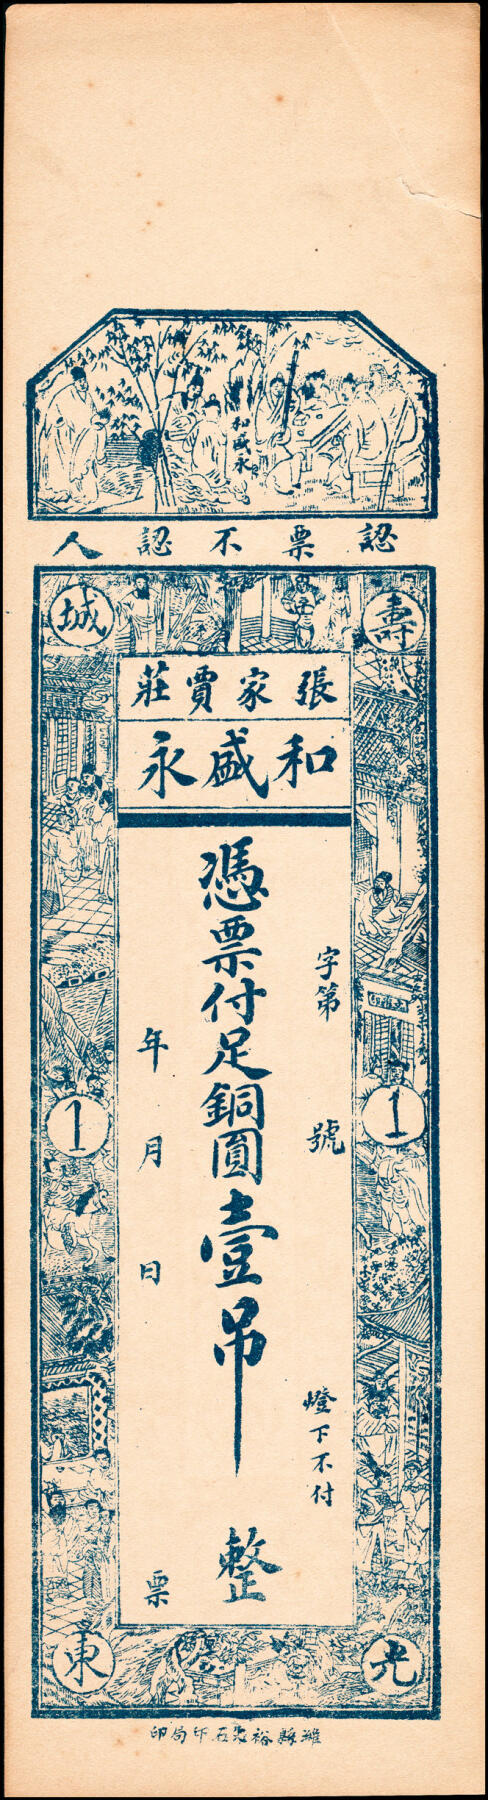 和盛永
認票不認人
壽光
城東
張家賈莊
和盛永
字第 號
燈下不付
憑票付足銅圓壹吊 整
年 月 日 票
1
1
濰縣裕 石印局印